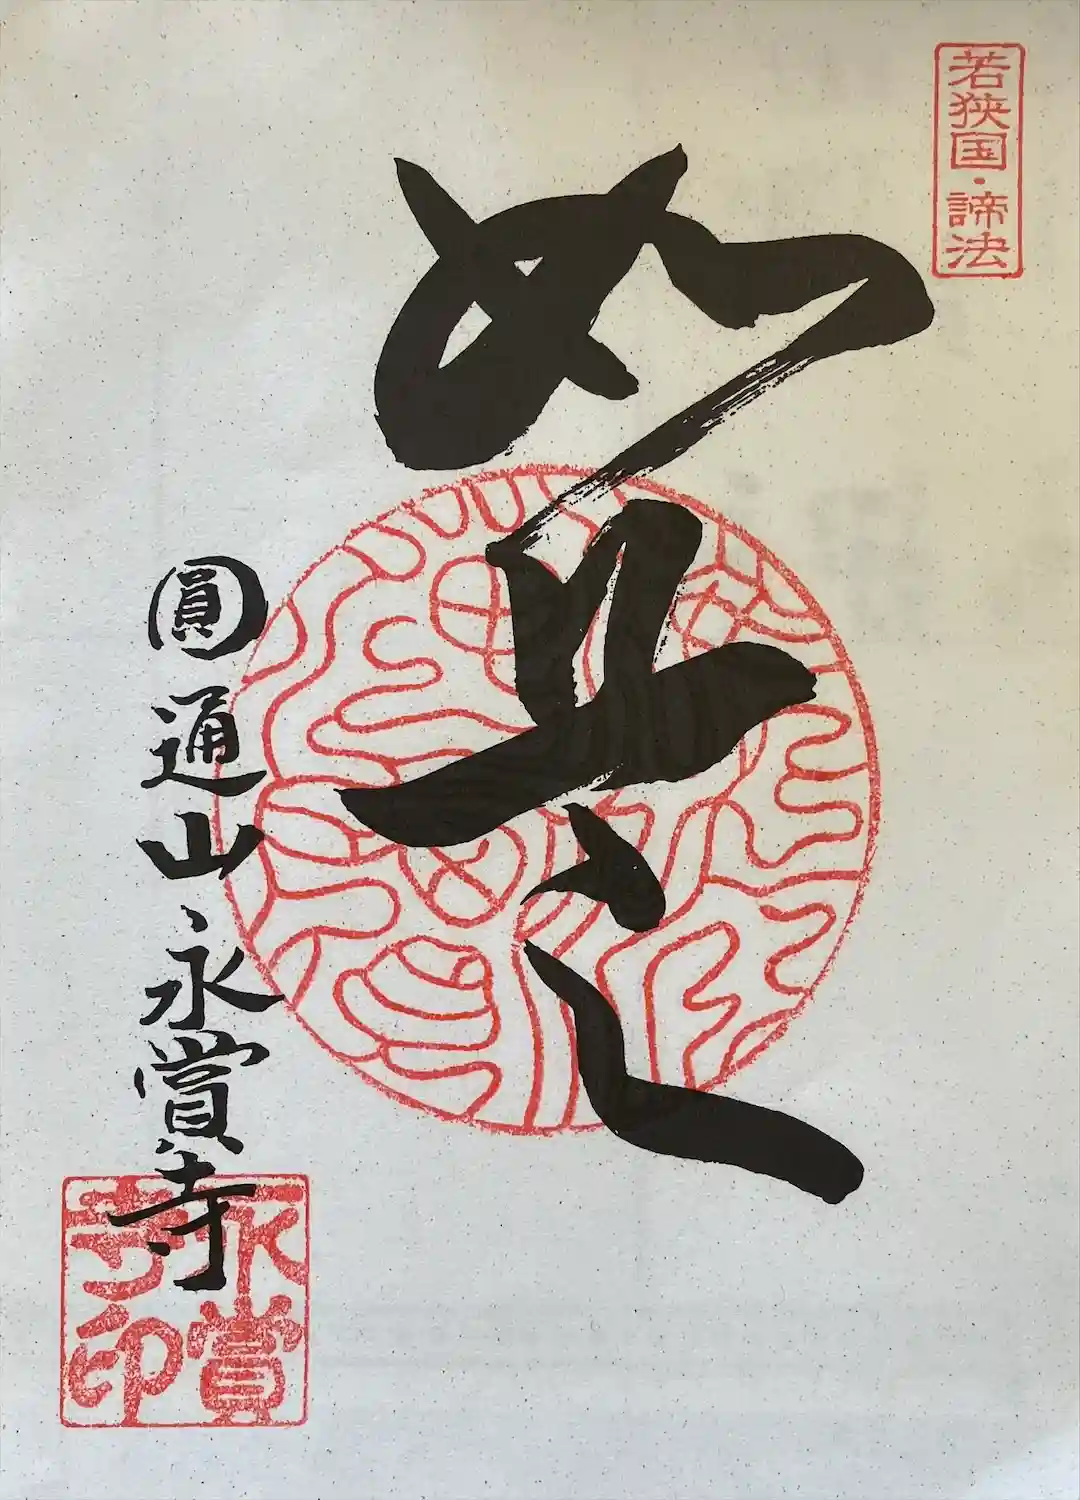 若狭国・諦法
如是
圓通山永賞寺
永賞
寺印